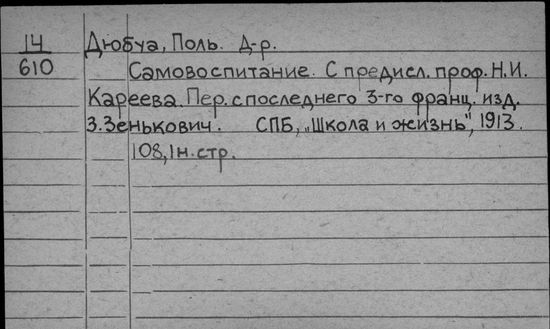 14 Дюбуа, Поль. Д-р.
610 Самовоспитание. С предисл. проф. Н.И.
Кареева. Пер. с последнего 3-го франц. изд.
З. Зенькович. СПБ, „Школа и жизнь", 1913.
108, 1 н. стр.